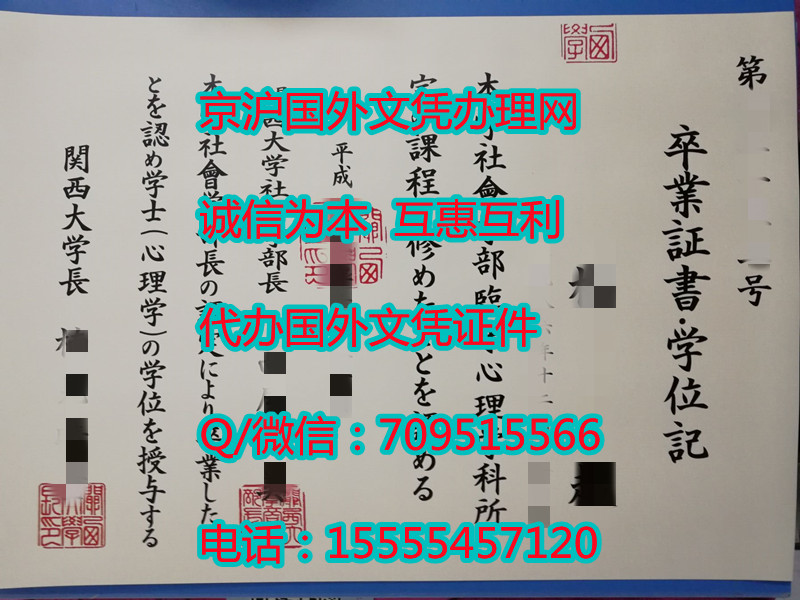 京沪国外文凭办理网
诚信为本 互惠互利
代办国外文凭证件
Q/微信：709515566
电话：15555457120
第 号
卒業証書・学位記
本 社會 部臨 心理 科所
定 課程 修めた とを める
平成
西大学社 部長
本 社會学 長の 定により 業した
とを認め学士(心理学)の学位を授与する
関西大学長